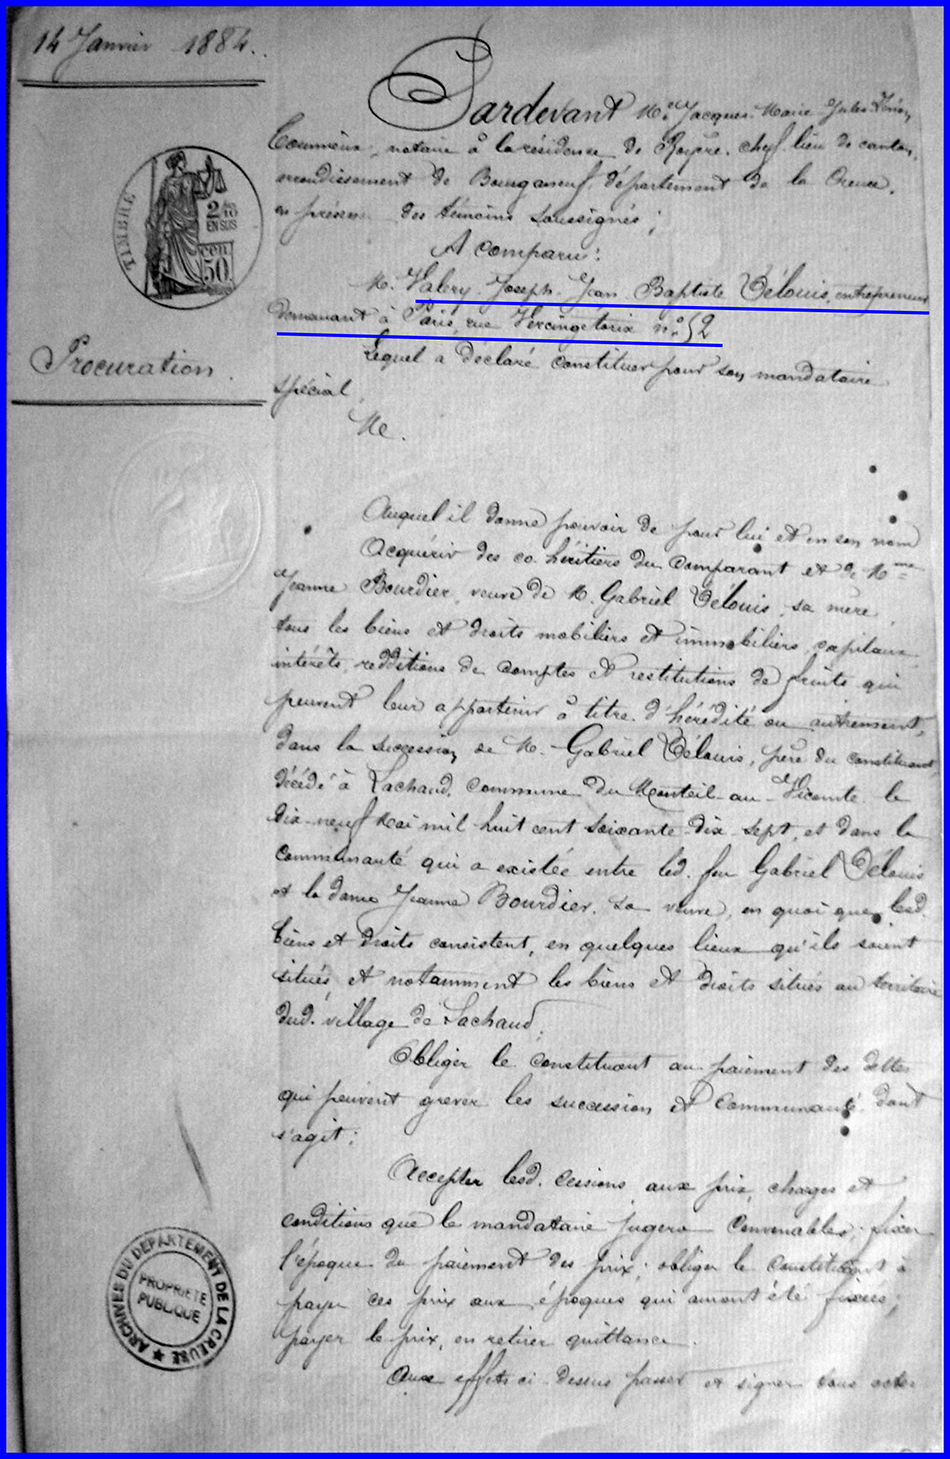 14 Janvier 1884.
Pardevant Me Jacques Marie Jules
notaire à la résidence de Royère, chef lieu de canton,
arrondissement de Bourganeuf, département de la Creuse,
en présence des témoins soussignés;
A comparu:
TIMBRE
2/10
EN SUS
50
M. Valery Joseph Jean Baptiste Délouis, entrepreneur
demeurant à Paris, rue Vercingétorix no 52
Procuration
Lequel a déclaré constituer pour son mandataire
spécial
Me.
Auquel il donne pouvoir de pour lui et en son nom
Acquérir des co-héritiers du comparant et de Mme
Jeanne Bourdier, veuve de M. Gabriel Délouis, sa mère,
tous les biens et droits mobiliers et immobiliers, capitaux,
intérêts, redditions de comptes et restitutions de fruits qui
peuvent leur appartenir à titre d'hérédité ou autrement,
dans la succession de M. Gabriel Délouis, père du constituant,
décédé à Lachaud, commune du Monteil-au-Vicomte le
dix-neuf Mai mil huit cent soixante-dix-sept, et dans la
communauté qui a existée entre led. feu Gabriel Délouis
et la dame Jeanne Bourdier, sa veuve, en quoi que lesd.
biens et droits consistent, en quelques lieux qu'ils soient
situés et notamment les biens et droits situés au territoire
dud. village de Lachaud;
Obliger le constituant au paiement des dettes
qui peuvent grever les succession et communauté dont
s'agit;
Accepter lesd. cessions aux prix, charges et
conditions que le mandataire jugera convenables; fixer
l'époque du paiement des prix; obliger le constituant à
payer ces prix aux époques qui auront été fixées;
payer le prix, en retirer quittance.
Aux effets ci-dessus passer et signer tous actes
ARCHIVES DU DEPARTEMENT DE LA CREUSE
PROPRIETE
PUBLIQUE